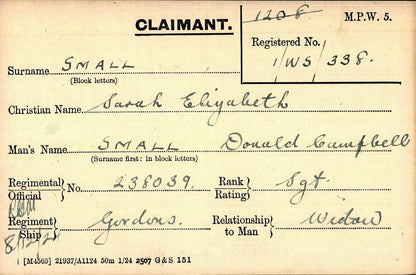 CLAIMANT. 1208 M.P.W. 5.
Registered No.
1/W5/338.
Surname SMALL
(Block letters)
Christian Name Sarah Elizabeth
Man's Name SMALL Donald Campbell
(Surname first: in block letters)
Regimental Official } No. 238039. Rank Rating } Sgt.
Regiment Ship } Gordons. Relationship to Man } Widow
[M4565] 21937/A1124 50m 1/24 2507 G & S 151